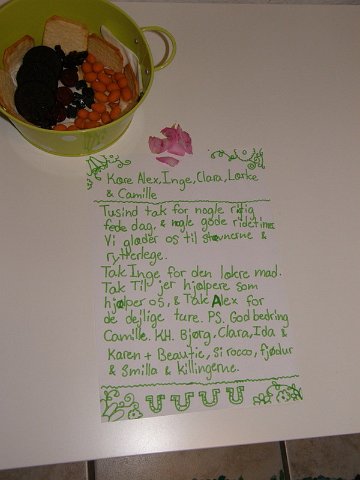 Kære Alex, Inge, Clara, Lærke
& Camille
Tusind tak for nogle rigtig
fede dag, & nogle gode ridetimer
Vi glæder os til stævnerne &
rytterlege.
Tak Inge for den lækre mad.
Tak Til jer hjælpere som
hjælper os, & Tak Alex for
de dejlige ture. PS. God bedring
Camille. KH. Bjørg, Clara, Ida &
Karen + Beautie, Sirocco, fjødur
& Smilla & killingerne.